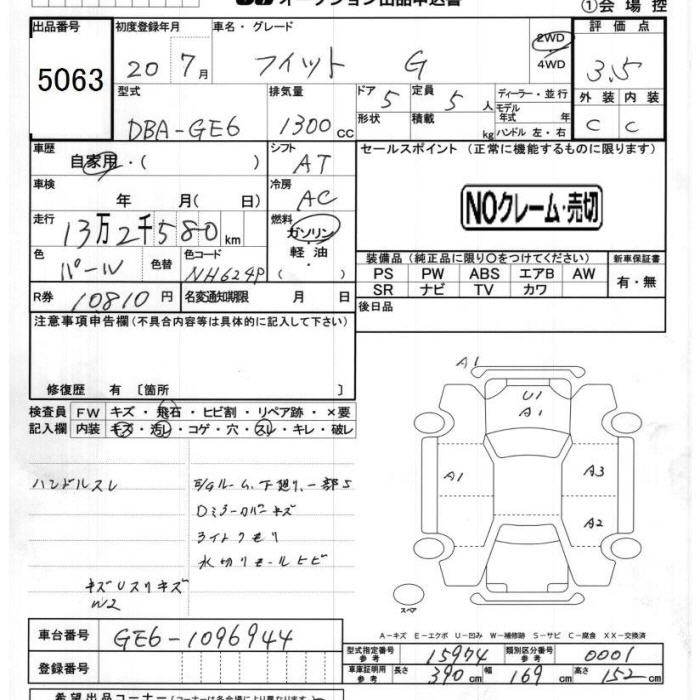 ①会場控
出品番号 初度登録年月 車名・グレード 評価点
5063 20 7月 フィット G 2WD 4WD 3.5
型式 排気量 ドア 5 定員 5 人 ディーラー・並行 外装 内装
モデル年式 年
DBA-GE6 1300cc 形状 積載 kg ハンドル 左・右 C C
車歴 自家用・( ) シフト AT セールスポイント (正常に機能するものに限ります)
車検 年 月( 日) 冷房 AC
NOクレーム・売切
走行 13万2千580km 燃料 ガソリン・軽油・( )
色 パール 色替 色コード NH624P
装備品 (純正品に限り〇をつけてください) 新車保証書
PS PW ABS エアB AW 有・無
SR ナビ TV カワ
R券 10810円 名変通知期限 月 日
後日品
注意事項申告欄(不具合内容等は具体的に記入して下さい)
修復歴 有 [箇所 ]
検査員 FW キズ・飛石・ヒビ割・リペア跡・×要
記入欄 内装 キズ・汚レ・コゲ・穴・スレ・キレ・破レ
ハンドルスレ
E/Gルーム、下廻り、一部S
Dミラーカバーキズ
ライトクモリ
水切りモールヒビ
キズUスリキズ
W2
A1
U1
A1
A1 A3
A2
スペア
A-キズ E-エクボ U-凹み W-補修跡 S-サビ C-腐食 XX-交換済
車台番号 GE6-1096944
型式指定番号 参考 15974 類別区分番号 参考 0001
登録番号
車庫証明用 参考 長さ 390cm 幅 169cm 高さ 152cm